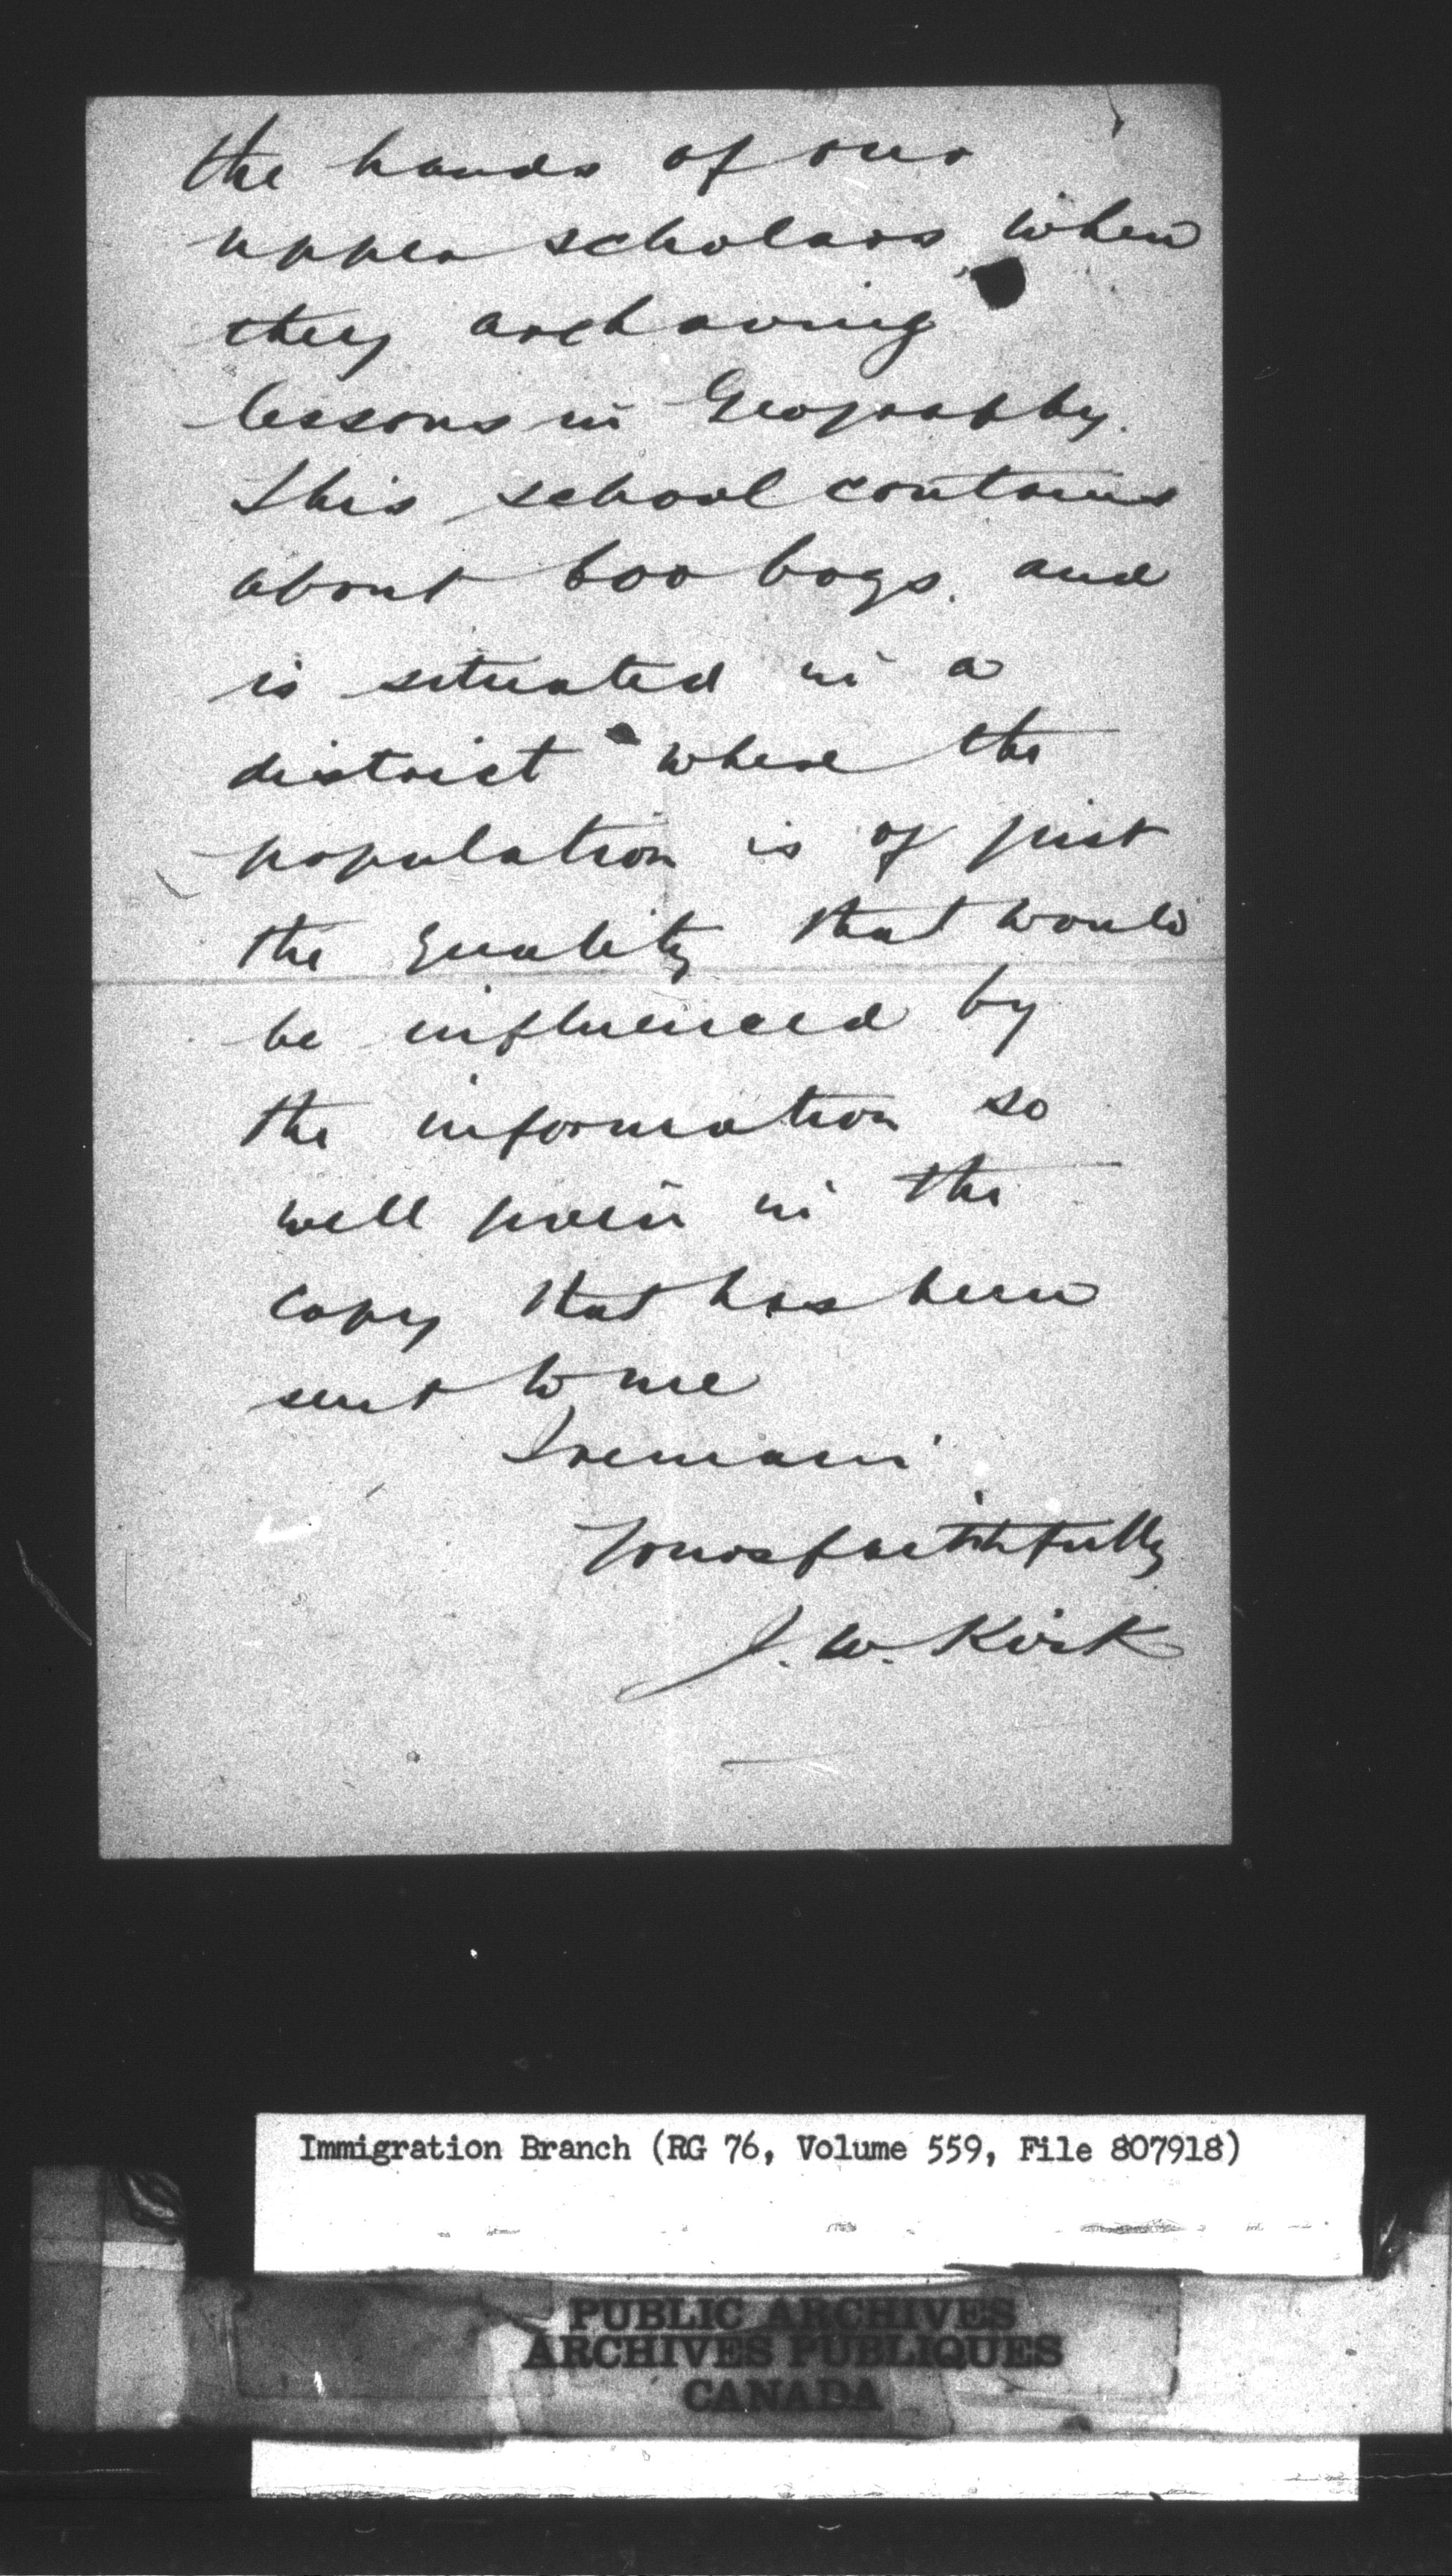 the hands of our
upper scholars when
they are having
lessons in Geography.
This school contains
about 600 boys. and
is situated in a
district where the
population is of just
the quality that would
be influenced by
the information so
well given in the
copy that has been
sent to me
I remain
Yours faithfully
J. W. Kirk
Immigration Branch (RG 76, Volume 559, File 807918)
PUBLIC ARCHIVES
ARCHIVES PUBLIQUES
CANADA